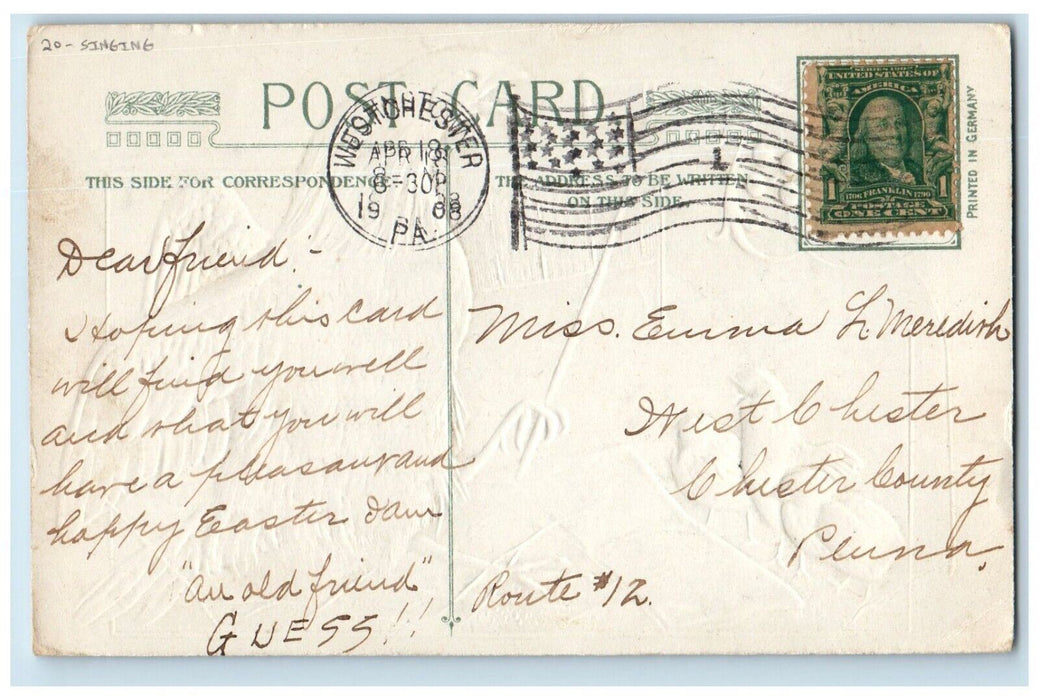 20- SINGING
POST CARD
THIS SIDE FOR CORRESPONDENCE
THE ADDRESS TO BE WRITTEN
ON THIS SIDE.
WEST CHESTER
APR 18
8-30P
1908
PA.
1
UNITED STATES OF
AMERICA
1706 FRANKLIN 1790
1 1
POSTAGE
ONE CENT
PRINTED IN GERMANY
Dear friend:-
Hoping this card
will find you well
and that you will
have a pleasant and
happy Easter I am
"An old friend"
GUESS!!
Miss. Emma L. Meredith
West Chester
Chester County
Penna.
Route #12.